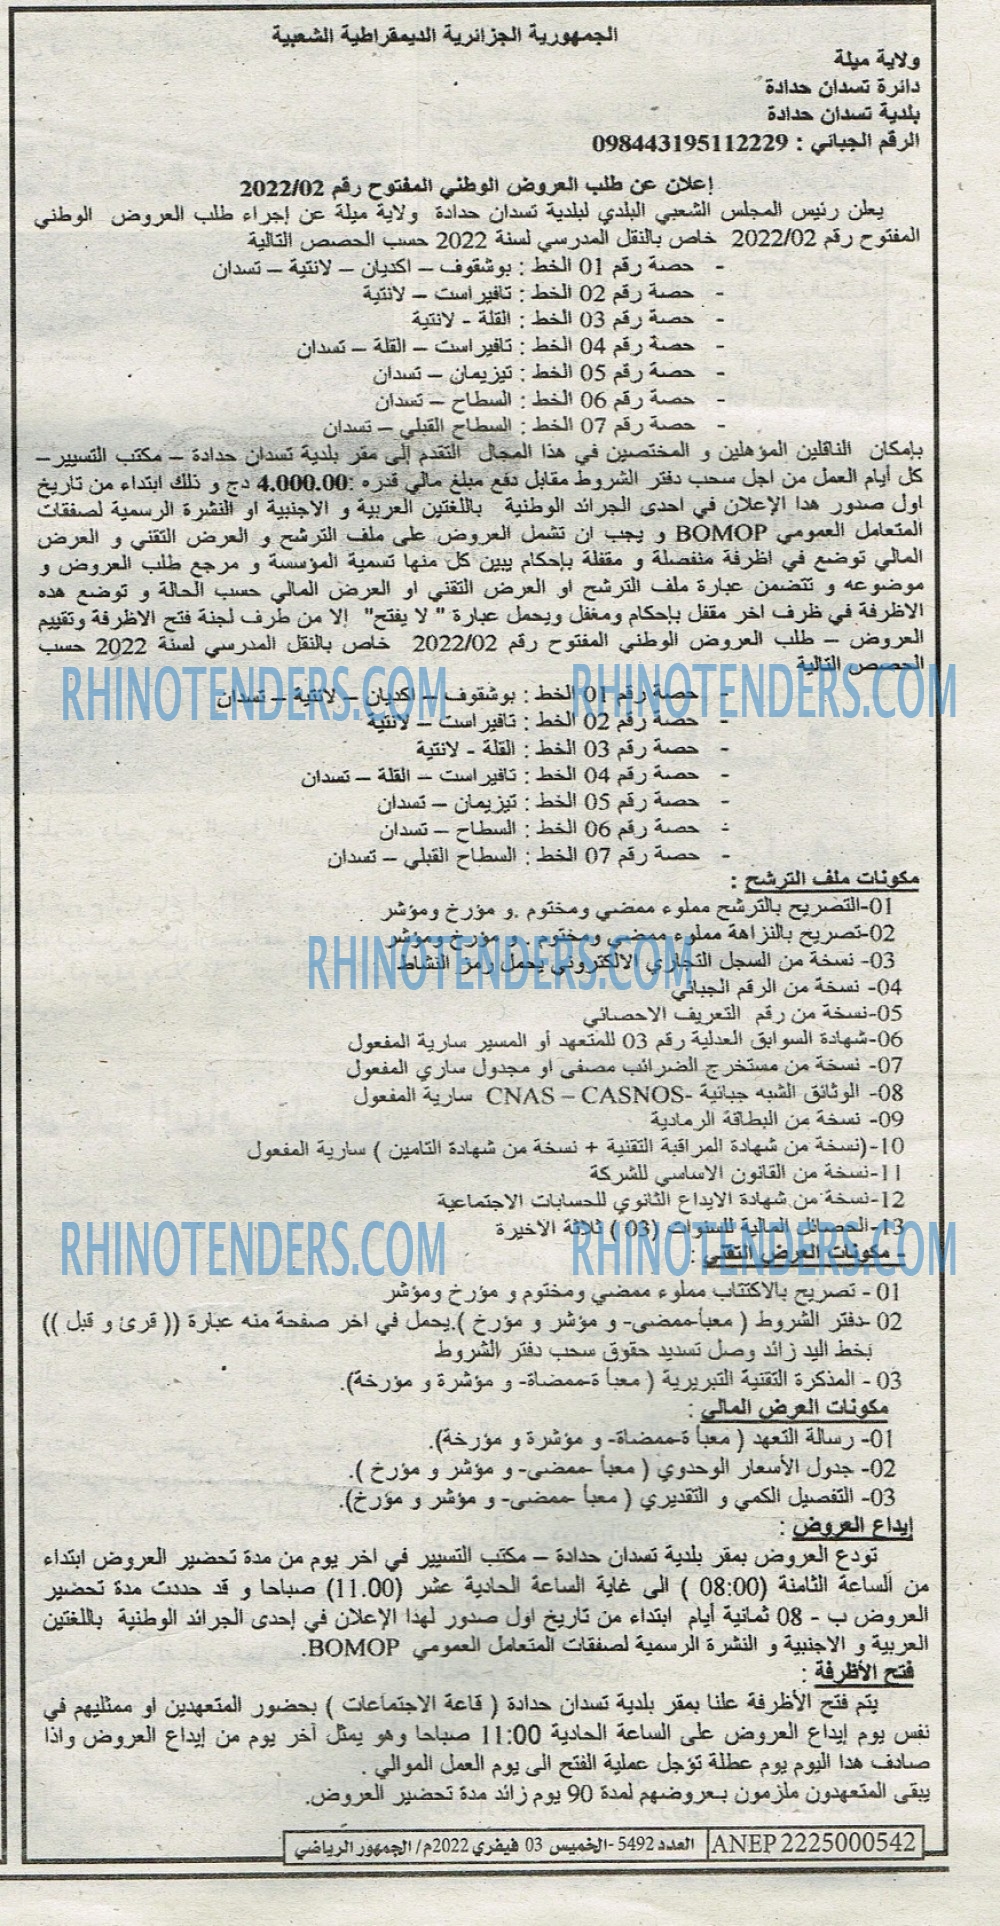 الجمهورية الجزائرية الديمقراطية الشعبية
ولاية ميلة
دائرة تسدان حدادة
بلدية تسدان حدادة
الرقم الجبائي : 098443195112229
إعلان عن طلب العروض الوطني المفتوح رقم 2022/02
يعلن رئيس المجلس الشعبي البلدي لبلدية تسدان حدادة ولاية ميلة عن إجراء طلب العروض الوطني
المفتوح رقم 2022/02 خاص بالنقل المدرسي لسنة 2022 حسب الحصص التالية
- حصة رقم 01 الخط : بوشقوف – اكديان – لانتية – تسدان
- حصة رقم 02 الخط : تافيراست – لانتية
- حصة رقم 03 الخط : القلة - لانتية
- حصة رقم 04 الخط : تافيراست – القلة – تسدان
- حصة رقم 05 الخط : تيزيمان – تسدان
- حصة رقم 06 الخط : السطاح – تسدان
- حصة رقم 07 الخط : السطاح القبلي – تسدان
بإمكان الناقلين المؤهلين و المختصين في هذا المجال التقدم إلى مقر بلدية تسدان حدادة – مكتب التسيير–
كل أيام العمل من اجل سحب دفتر الشروط مقابل دفع مبلغ مالي قدره :4.000.00 دج و ذلك ابتداء من تاريخ
اول صدور هدا الإعلان في احدى الجرائد الوطنية باللغتين العربية و الاجنبية او النشرة الرسمية لصفقات
المتعامل العمومي BOMOP و يجب ان تشمل العروض على ملف الترشح و العرض التقني و العرض
المالي توضع في اظرفة منفصلة و مقفلة بإحكام يبين كل منها تسمية المؤسسة و مرجع طلب العروض و
موضوعه و تتضمن عبارة ملف الترشح او العرض التقني او العرض المالي حسب الحالة و توضع هده
الاظرفة في ظرف اخر مقفل بإحكام ومغفل ويحمل عبارة " لا يفتح" إلا من طرف لجنة فتح الاظرفة وتقييم
العروض – طلب العروض الوطني المفتوح رقم 2022/02 خاص بالنقل المدرسي لسنة 2022 حسب
الحصص التالية
- حصة رقم 01 الخط : بوشقوف – اكديان – لانتية – تسدان
RHINOTENDERS.COM RHINOTENDERS.COM
- حصة رقم 02 الخط : تافيراست – لانتية
- حصة رقم 03 الخط : القلة - لانتية
- حصة رقم 04 الخط : تافيراست – القلة – تسدان
- حصة رقم 05 الخط : تيزيمان – تسدان
- حصة رقم 06 الخط : السطاح – تسدان
- حصة رقم 07 الخط : السطاح القبلي – تسدان
مكونات ملف الترشح :
01-التصريح بالترشح مملوء ممضي ومختوم .و مؤرخ ومؤشر
02-تصريح بالنزاهة مملوء ممضي ومختوم . و مؤرخ ومؤشر
03- نسخة من السجل التجاري الالكتروني يحمل رمز النشاط
RHINOTENDERS.COM
04- نسخة من الرقم الجبائي
05-نسخة من رقم التعريف الاحصائي
06-شهادة السوابق العدلية رقم 03 للمتعهد أو المسير سارية المفعول
07- نسخة من مستخرج الضرائب مصفى او مجدول ساري المفعول
08- الوثائق الشبه جبائية -CNAS – CASNOS سارية المفعول
09- نسخة من البطاقة الرمادية
10-(نسخة من شهادة المراقبة التقنية + نسخة من شهادة التامين ) سارية المفعول
11-نسخة من القانون الاساسي للشركة
12-نسخة من شهادة الايداع الثانوي للحسابات الاجتماعية
13-الحصائل المالية للسنوات (03 ) ثلاثة الاخيرة
RHINOTENDERS.COM RHINOTENDERS.COM
- مكونات العرض التقني :
01 - تصريح بالاكتتاب مملوء ممضي ومختوم و مؤرخ ومؤشر
02 -دفتر الشروط ( معبأ-ممضى- و مؤشر و مؤرخ ).يحمل في اخر صفحة منه عبارة (( قرئ و قبل ))
بخط اليد زائد وصل تسديد حقوق سحب دفتر الشروط
03 - المذكرة التقنية التبريرية ( معبأ ة-ممضاة- و مؤشرة و مؤرخة).
مكونات العرض المالي :
01- رسالة التعهد ( معبأ ة-ممضاة- و مؤشرة و مؤرخة).
02- جدول الأسعار الوحدوي ( معبأ -ممضى- و مؤشر و مؤرخ ).
03- التفصيل الكمي و التقديري ( معبأ -ممضى- و مؤشر و مؤرخ).
إيداع العروض :
تودع العروض بمقر بلدية تسدان حدادة – مكتب التسيير في اخر يوم من مدة تحضير العروض ابتداء
من الساعة الثامنة (08:00 ) الى غاية الساعة الحادية عشر (11.00) صباحا و قد حددت مدة تحضير
العروض ب - 08 ثمانية أيام ابتداء من تاريخ اول صدور لهذا الإعلان في إحدى الجرائد الوطنية باللغتين
العربية و الاجنبية و النشرة الرسمية لصفقات المتعامل العمومي BOMOP.
فتح الأظرفة :
يتم فتح الأظرفة علنا بمقر بلدية تسدان حدادة ( قاعة الاجتماعات ) بحضور المتعهدين او ممثليهم في
نفس يوم إيداع العروض على الساعة الحادية 11:00 صباحا وهو يمثل آخر يوم من إيداع العروض واذا
صادف هدا اليوم يوم عطلة تؤجل عملية الفتح الى يوم العمل الموالي .
يبقى المتعهدون ملزمون بـعروضهم لمدة 90 يوم زائد مدة تحضير العروض.
ANEP 2225000542 العدد 5492 -الخميس 03 فيفري 2022م/ الجمهور الرياضي